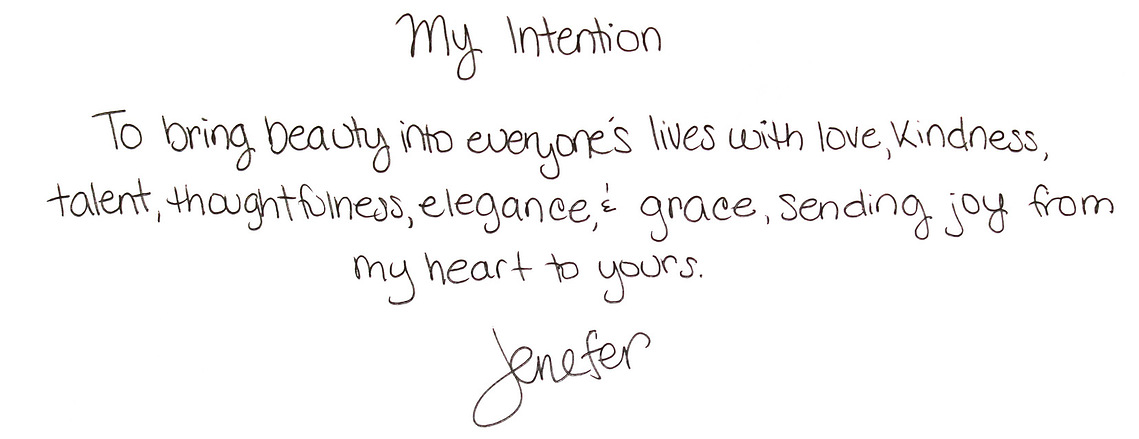 My Intention
To bring beauty into everyone's lives with love, Kindness,
talent, thoughtfulness, elegance, & grace, sending joy from
my heart to yours.
Jenefer